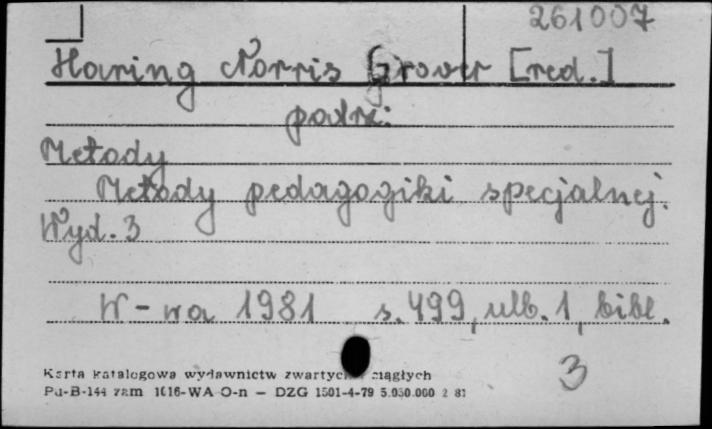 261007
Haring Norris Grover [red.]
patrz:
Metody
Metody pedagogiki specjalnej.
Wyd. 3
W-wa 1981 s. 499, ulb. 1, bibl.
3
Karta katalogowa wydawnictw zwartych ciągłych
Pu-B-144 zam 1016-WA O-n — DZG 1501-4-79 5.050.000 2 81